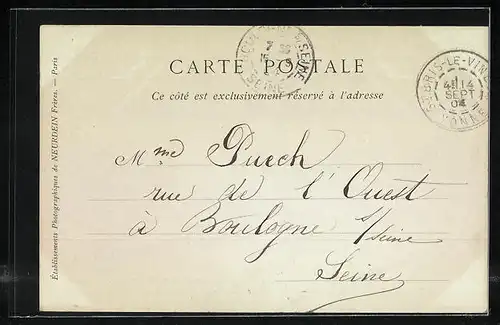 CARTE POSTALE
Ce côté est exclusivement réservé à l'adresse
Mme Puech
rue de l'Ouest
à Boulogne s/seine
Seine
Etablissements Photographiques de NEURDEIN Frères. — Paris
SEINE
SEINE
ST BRIS-LE-VINEUX
14
SEPT
04
YONNE